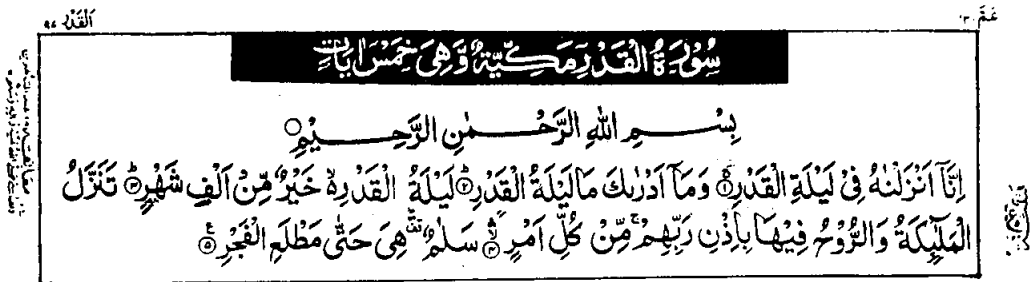 عَمَّ ٣٠
اَلْقَدْرِ ٩٧
سُوْرَةُ الْقَدْرِ مَكِّيَّةٌ وَّهِىَ خَمْسُ اٰيَاتٍ
بِسْمِ اللّٰهِ الرَّحْمٰنِ الرَّحِيْمِ
اِنَّآ اَنْزَلْنٰهُ فِىْ لَيْلَةِ الْقَدْرِ ۚۖ‏﴿۱﴾ وَمَآ اَدْرٰىكَ مَا لَيْلَةُ الْقَدْرِ ؕ﴿۲﴾ لَيْلَةُ الْقَدْرِ ۙ خَيْرٌ مِّنْ اَلْفِ شَهْرٍ ؕ﴿۳﴾ تَنَزَّلُ
الْمَلٰٓئِكَةُ وَالرُّوْحُ فِيْهَا بِاِذْنِ رَبِّهِمْ ۚ مِّنْ كُلِّ اَمْرٍ ۙۛ﴿۴﴾ سَلٰمٌ ۛ هِىَ حَتّٰى مَطْلَعِ الْفَجْرِ ﴿۵﴾